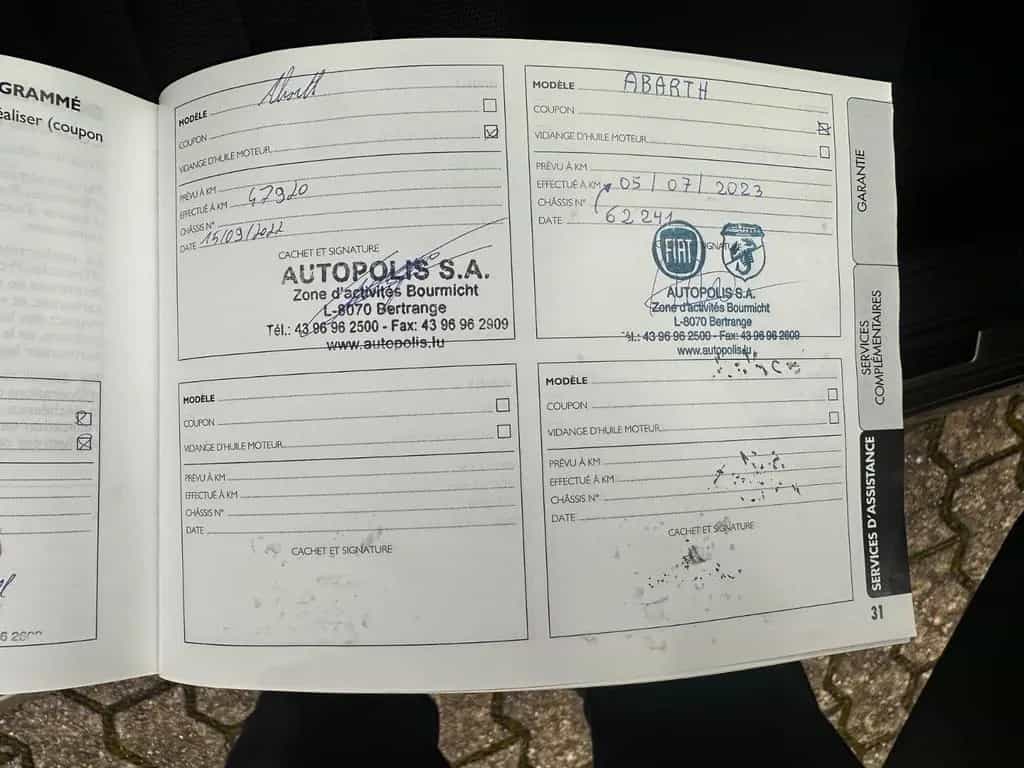 GRAMMÉ
éaliser (coupon
MODÈLE Abarth
COUPON
VIDANGE D'HUILE MOTEUR
PRÉVU À KM
EFFECTUÉ À KM 47920
CHÂSSIS N°
DATE 15/09/2022
CACHET ET SIGNATURE
AUTOPOLIS S.A.
Zone d'activités Bourmicht
L-8070 Bertrange
Tél.: 43 96 96 2500 - Fax: 43 96 96 2909
www.autopolis.lu
MODÈLE ABARTH
COUPON
VIDANGE D'HUILE MOTEUR
PRÉVU À KM
EFFECTUÉ À KM 05 / 07 / 2023
CHÂSSIS N°
DATE 62 241
FIAT
ABARTH
AUTOPOLIS S.A.
Zone d'activités Bourmicht
L-8070 Bertrange
Tél.: 43 96 96 2500 - Fax: 43 96 96 2609
www.autopolis.lu
MODÈLE
COUPON
VIDANGE D'HUILE MOTEUR
PRÉVU À KM
EFFECTUÉ À KM
CHÂSSIS N°
DATE
CACHET ET SIGNATURE
MODÈLE
COUPON
VIDANGE D'HUILE MOTEUR
PRÉVU À KM
EFFECTUÉ À KM
CHÂSSIS N°
DATE
CACHET ET SIGNATURE
GARANTIE
SERVICES
COMPLÉMENTAIRES
SERVICES D'ASSISTANCE
31